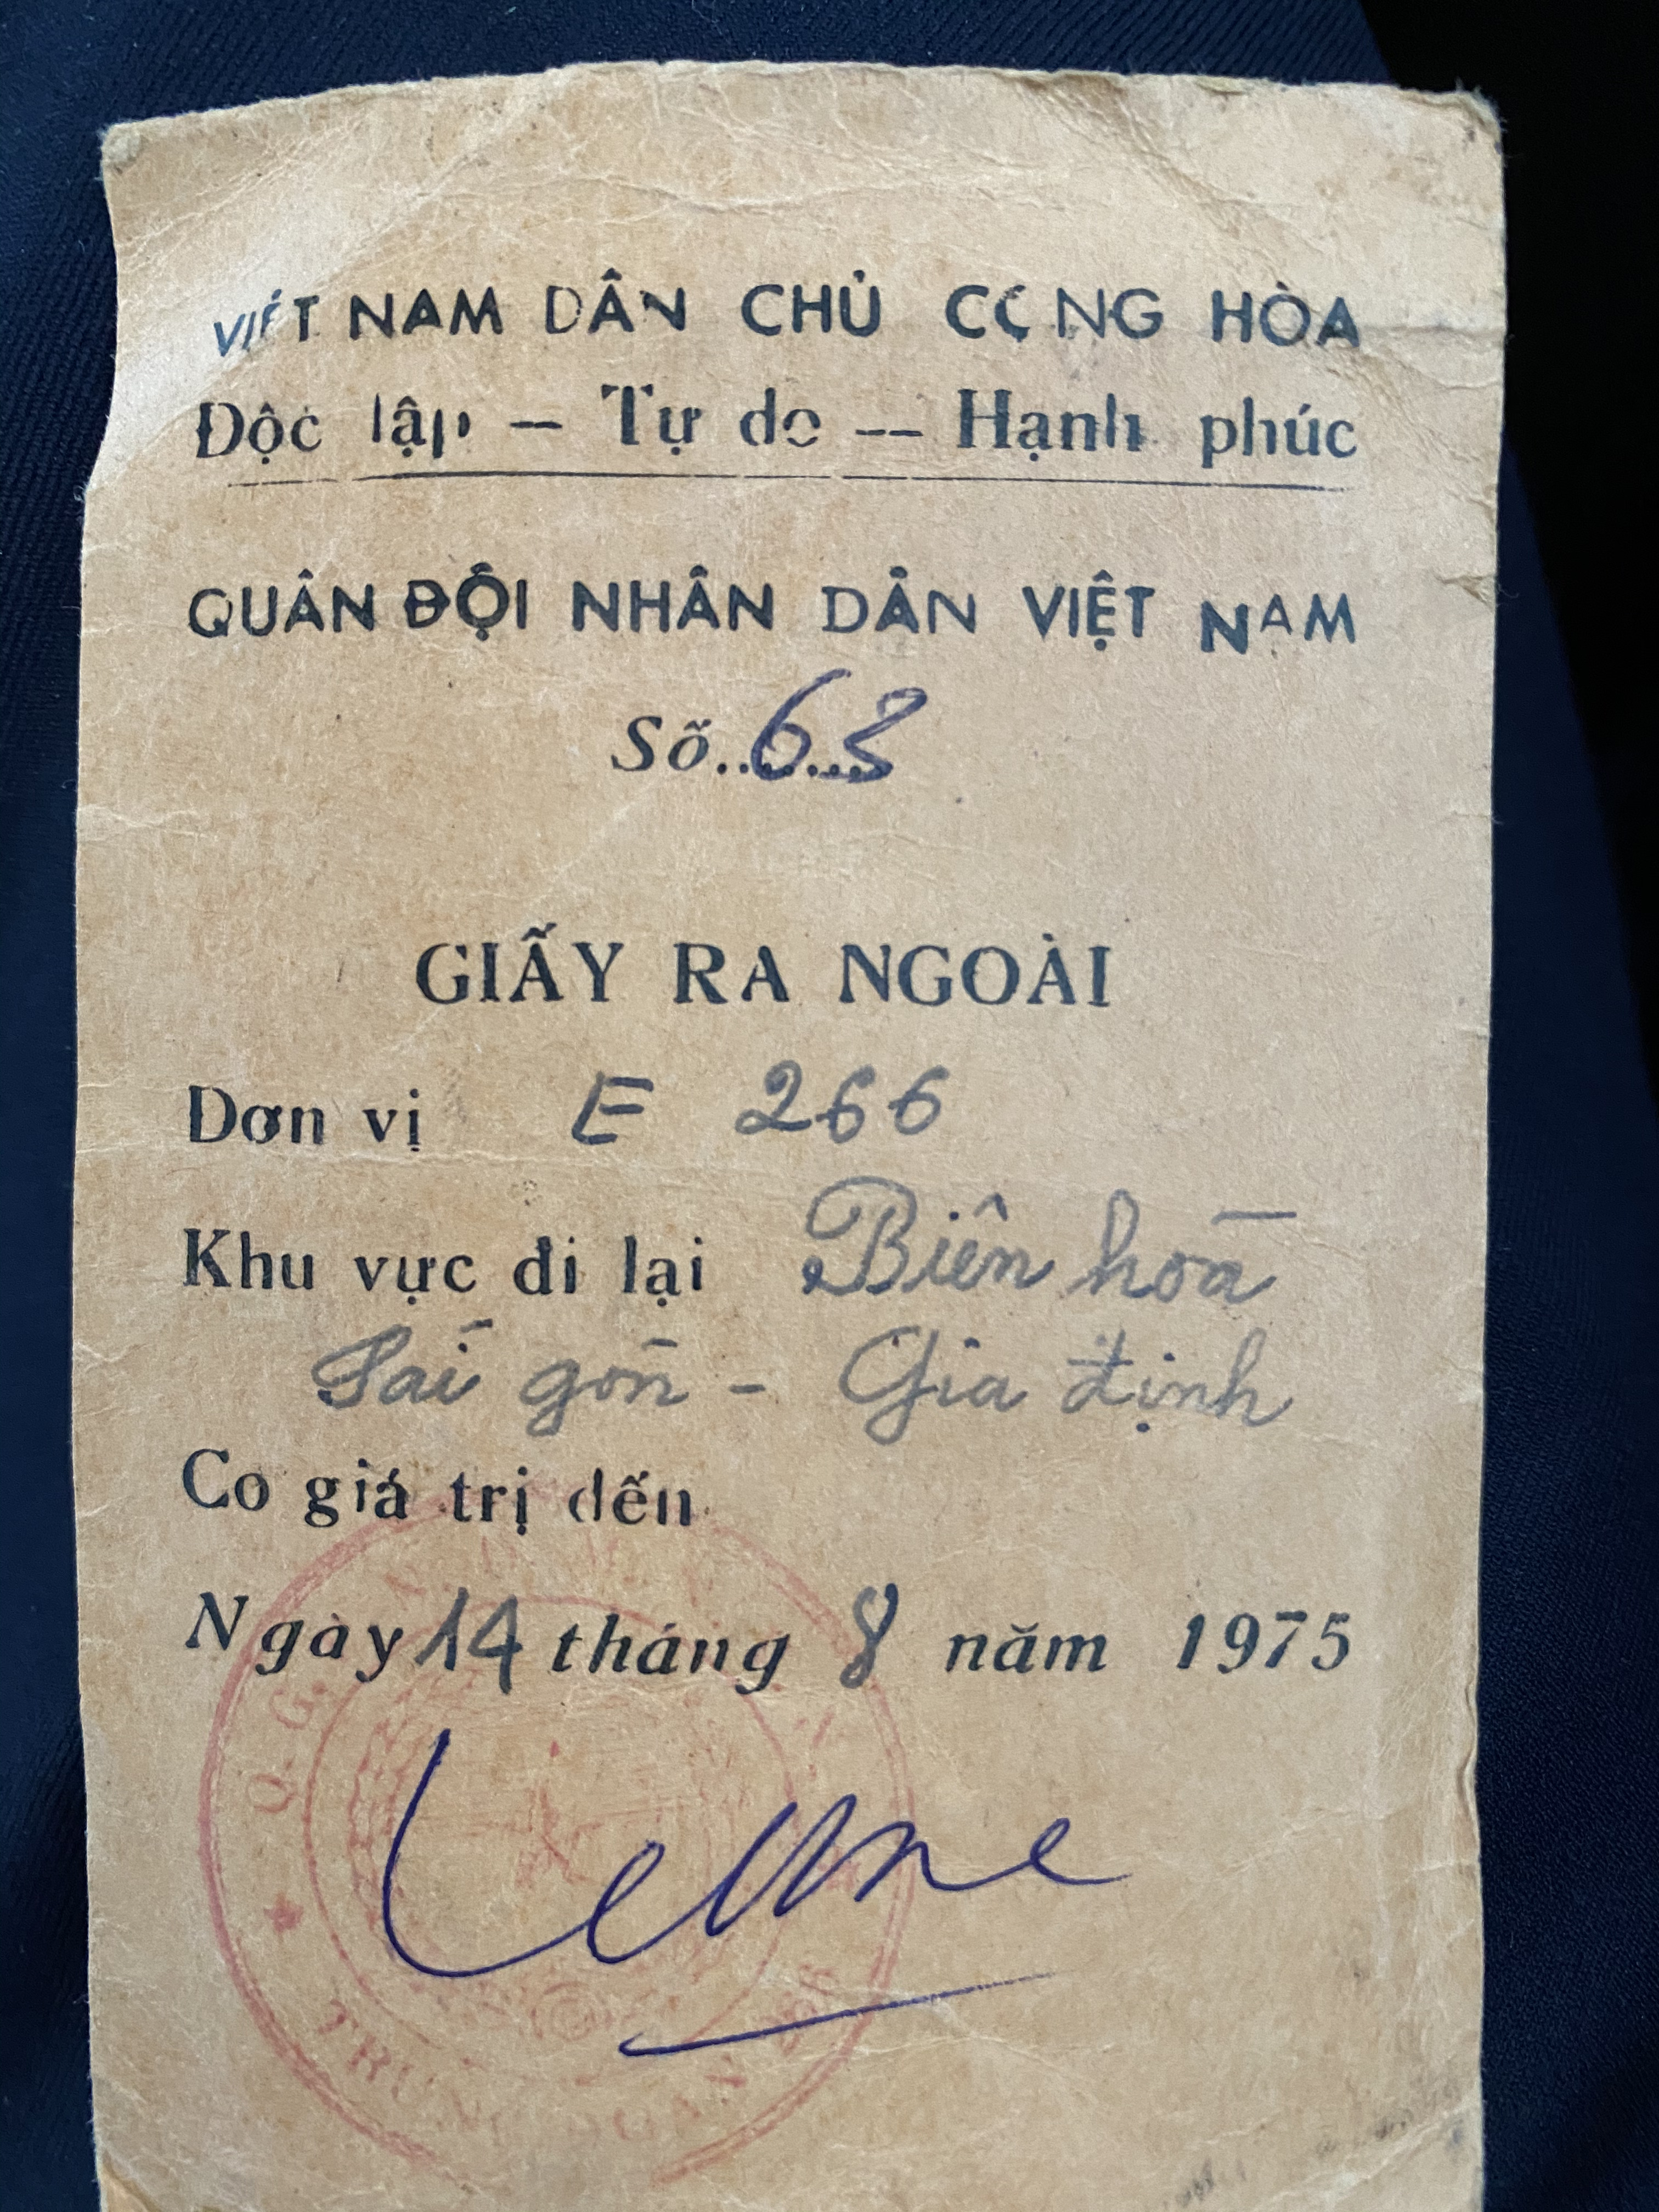 VIỆT NAM DÂN CHỦ CỘNG HÒA
Độc lập — Tự do — Hạnh phúc
QUÂN ĐỘI NHÂN DÂN VIỆT NAM
Số..63
GIẤY RA NGOÀI
Đơn vị E 266
Khu vực đi lại Biên hoà
Sài gòn - Gia định
Co giá trị đến
Ngày 14 tháng 8 năm 1975
TRUNG ĐOÀN